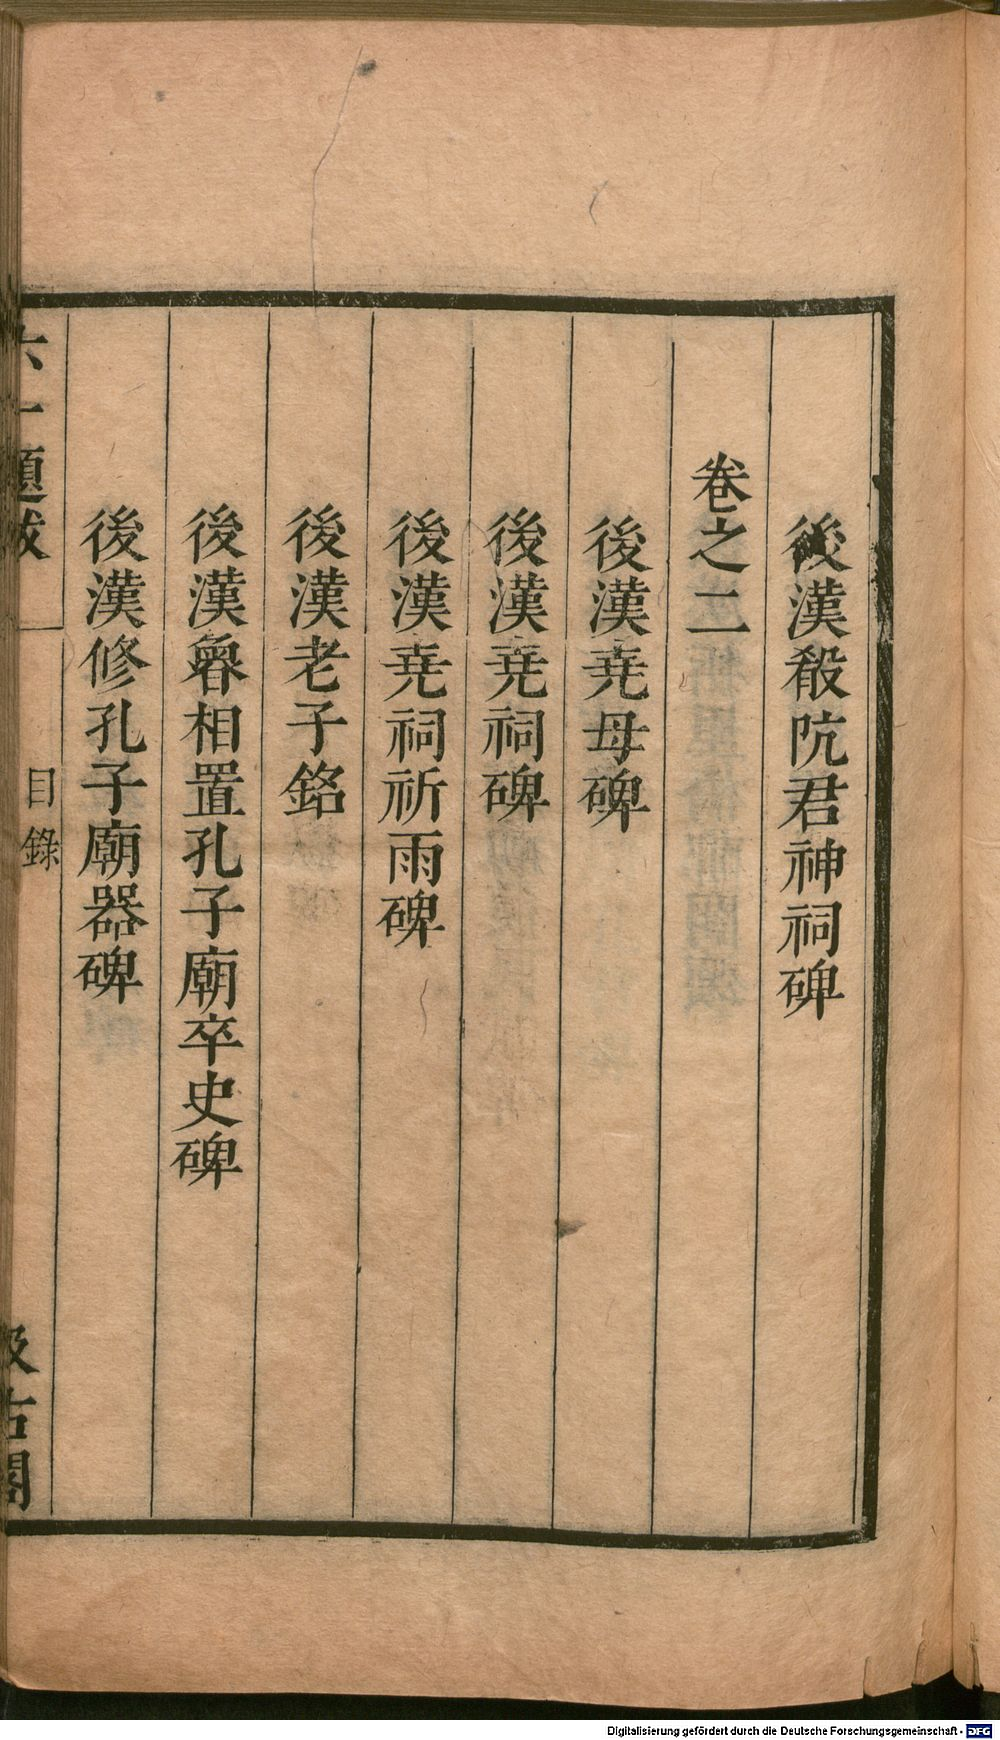 後漢殽阬君神祠碑
卷之二
後漢堯母碑
後漢堯祠碑
後漢堯祠祈雨碑
後漢老子銘
後漢魯相置孔子廟卒史碑
後漢修孔子廟器碑
六一題跋 目錄 汲古閣
Digitalisierung gefördert durch die Deutsche Forschungsgemeinschaft - DFG